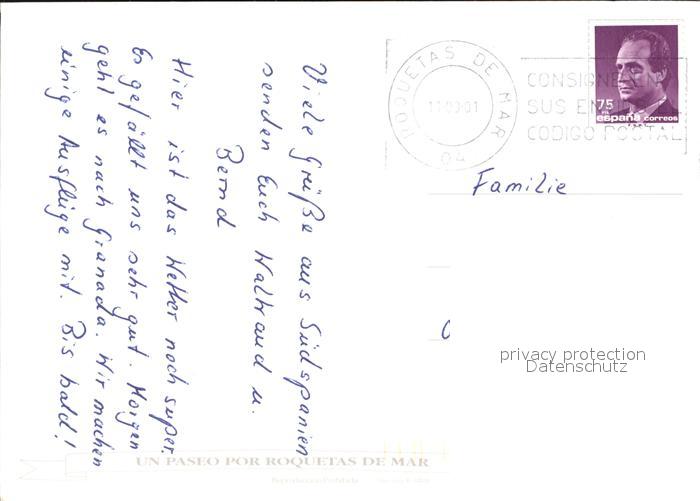 Viele Grüße aus Südspanien
senden Euch Waltraud u.
Bernd
Hier ist das Wetter noch super.
Es gefällt uns sehr gut. Morgen
geht es nach Granada. Wir machen
einige Ausflüge mit. Bis bald!
ROQUETAS DE MAR
04
CONSIGNE EN
SUS EN
CODIGO POSTAL
75
españa correos
Familie
privacy protection
Datenschutz
UN PASEO POR ROQUETAS DE MAR
Reproducción Prohibida